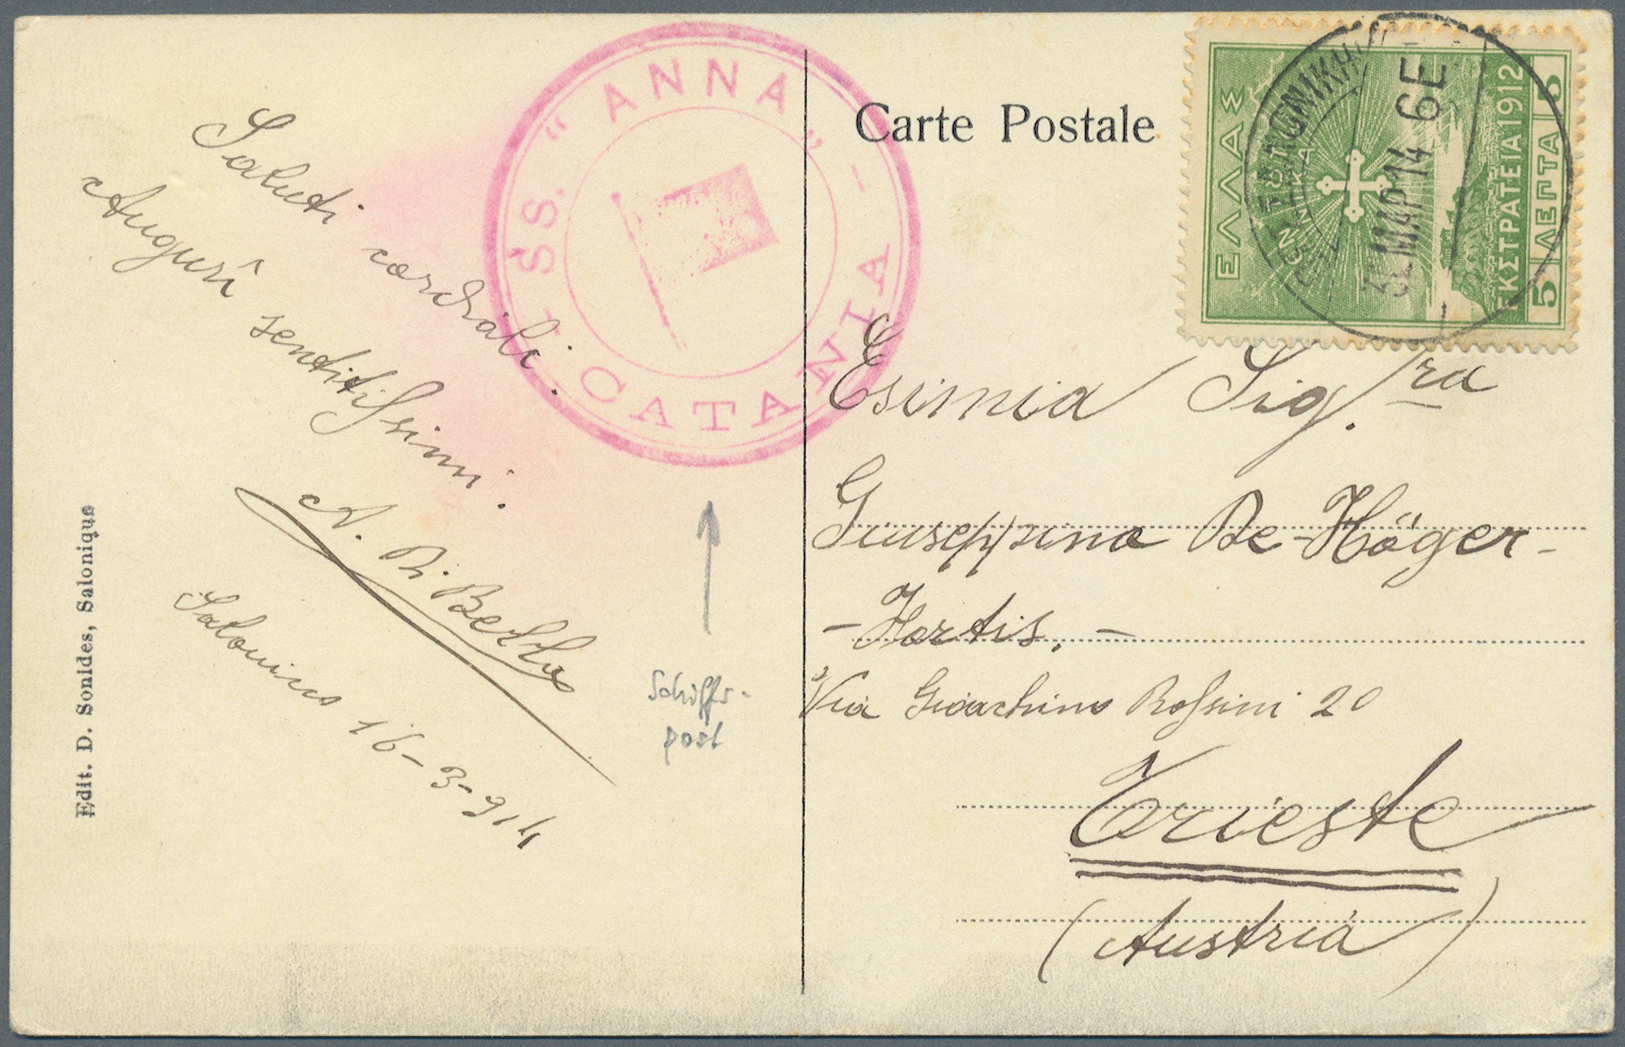 Saluti cordiali.
Augurî sentitissimi.
Salonicco 16-3-914
Edit. D. Sonides, Salonique
SS. "ANNA" - CATANIA -
Schiffs-
post
Carte Postale
ΕΛΛΑΣ
ΕΚΣΤΡΑΤΕΙΑ 1912
5 ΛΕΠΤΑ 5
ΜΑΡ 14 6Ε
Esimia Sig.ra
Giuseppina De-Höger-
-Hortis.-
Via Gioachino Rossini 20
Trieste
(Austria)